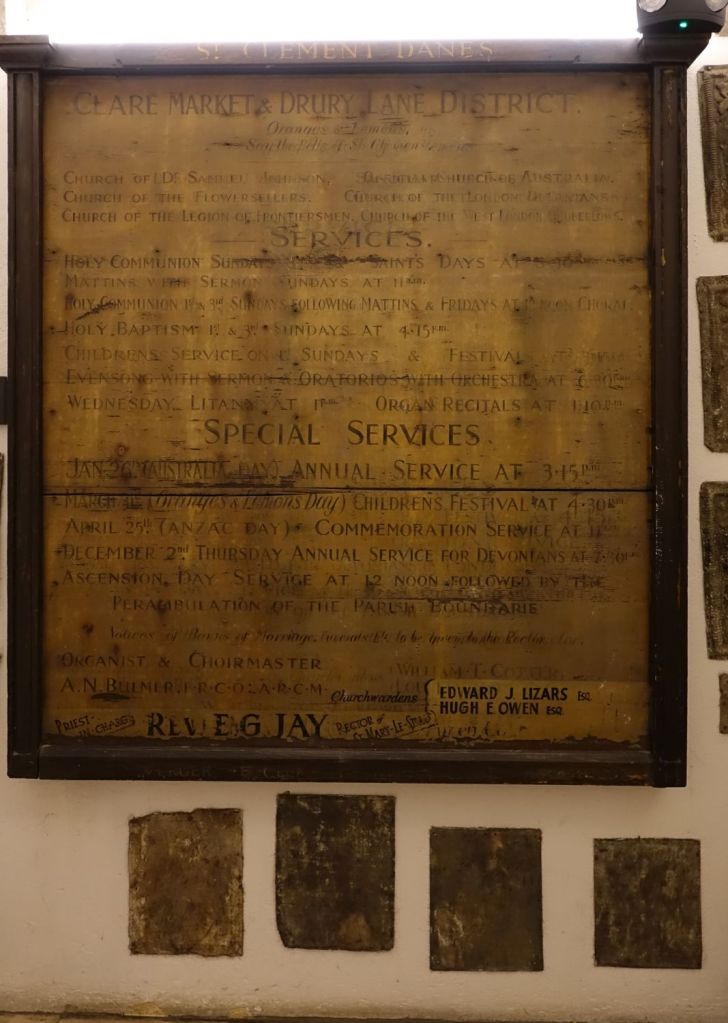 ST CLEMENT DANES
CLARE MARKET & DRURY LANE DISTRICT.
Oranges & Lemons,
Say the Bells of St. Clements
CHURCH OF DR SAMUEL JOHNSON, CHURCH OF AUSTRALIA.
CHURCH OF THE FLOWERSELLERS. CHURCH OF THE LONDON DEVONIANS
CHURCH OF THE LEGION OF FRONTIERSMEN. CHURCH OF THE WEST LONDON
SERVICES.
HOLY COMMUNION SUNDAYS SAINTS DAYS AT
MATTINS WITH SERMON SUNDAYS AT 11 A.M.
HOLY COMMUNION 1st & 3rd SUNDAYS FOLLOWING MATTINS & FRIDAYS AT NOON CHORAL.
HOLY BAPTISM 1st & 3rd SUNDAYS AT 4.15 P.M.
CHILDRENS SERVICE ON SUNDAYS & FESTIVALS
EVENSONG WITH SERMON & ORATORIOS WITH ORCHESTRA AT 6.30 P.M.
WEDNESDAY LITANY AT 1 P.M. ORGAN RECITALS AT 1.10 P.M.
SPECIAL SERVICES.
JAN. 26th (AUSTRALIA DAY) ANNUAL SERVICE AT 3.15 P.M.
MARCH (Oranges & Lemons Day) CHILDRENS FESTIVAL AT 4.30 P.M.
APRIL 25th (ANZAC DAY) COMMEMORATION SERVICE AT
DECEMBER 2nd THURSDAY ANNUAL SERVICE FOR DEVONIANS AT 7.30
ASCENSION DAY SERVICE AT 12 NOON FOLLOWED BY THE
PERAMBULATION OF THE PARISH BOUNDARIE
Notices of Banns of Marriage, to be given to the Rector
ORGANIST & CHOIRMASTER
A.N. BULMER, F.R.C.O. A.R.C.M. Churchwardens { EDWARD J. LIZARS ESQ.
HUGH E OWEN ESQ.
PRIEST-IN-CHARGE REV. E.G. JAY RECTOR OF ST MARY-LE-STRAND